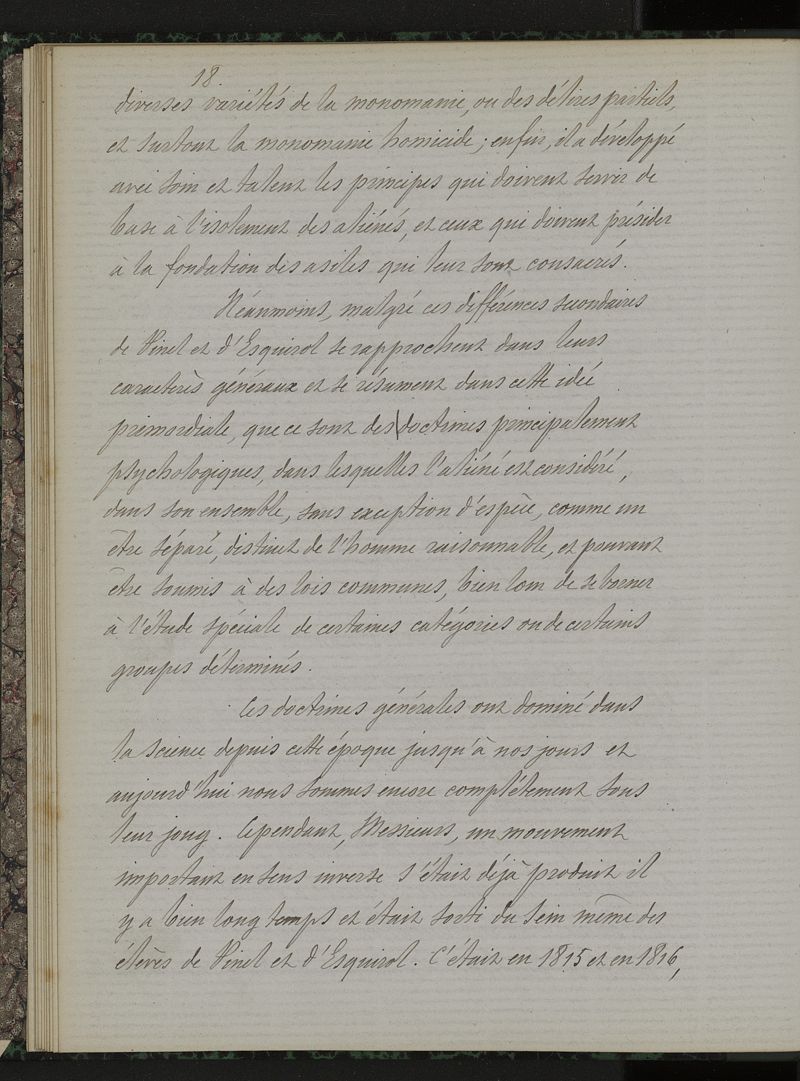 18
diverses variétés de la monomanie, ou des délires partiels,
et surtout la monomanie homicide ; enfin, il a développé
avec soin et talent les principes qui doivent servir de
base à l'isolement des aliénés, et ceux qui doivent présider
à la fondation des asiles qui leur sont consacrés.
Néanmoins, malgré ces différences secondaires
de Pinel et d'Esquirol se rapprochent dans leurs
caractères généraux et se résument dans cette idée
primordiale, que ce sont des doctrines principalement
psychologiques, dans lesquelles l'aliéné est considéré,
dans son ensemble, sans exception d'espèce, comme un
être séparé, distinct de l'homme raisonnable, et pouvant
être soumis à des lois communes, bien loin de se borner
à l'étude spéciale de certaines catégories ou de certains
groupes déterminés.
Ces doctrines générales ont dominé dans
la science depuis cette époque jusqu'à nos jours et
aujourd'hui nous sommes encore complétement sous
leur joug. Cependant, Messieurs, un mouvement
important en sens inverse s'était déjà produit il
y a bien long temps et était sorti du sein même des
élèves de Pinel et d'Esquirol. C'était en 1815 et en 1816,